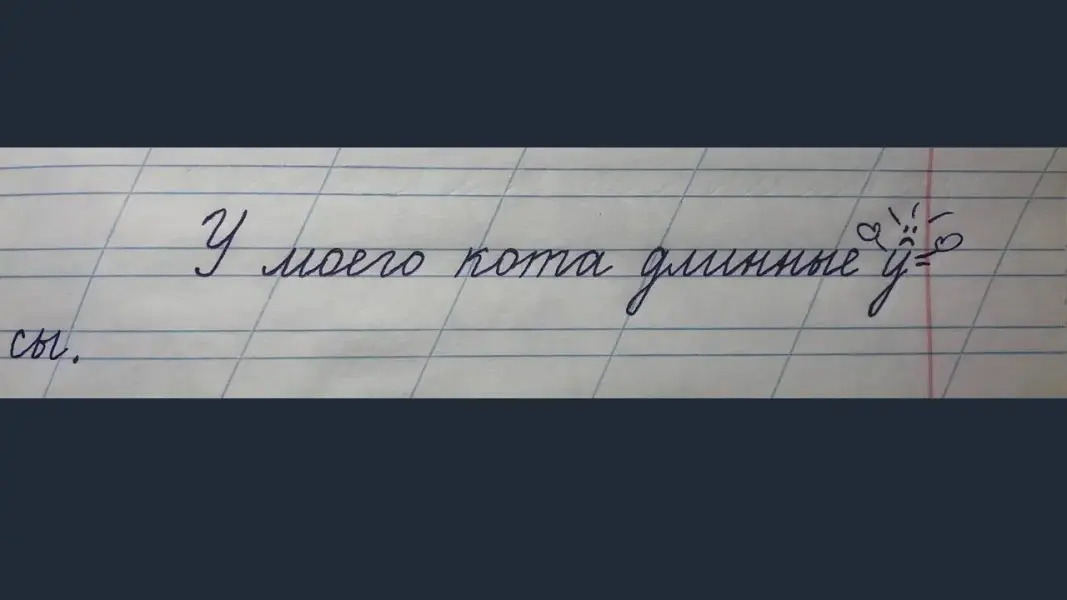 У моего кота длинные у=
сы.